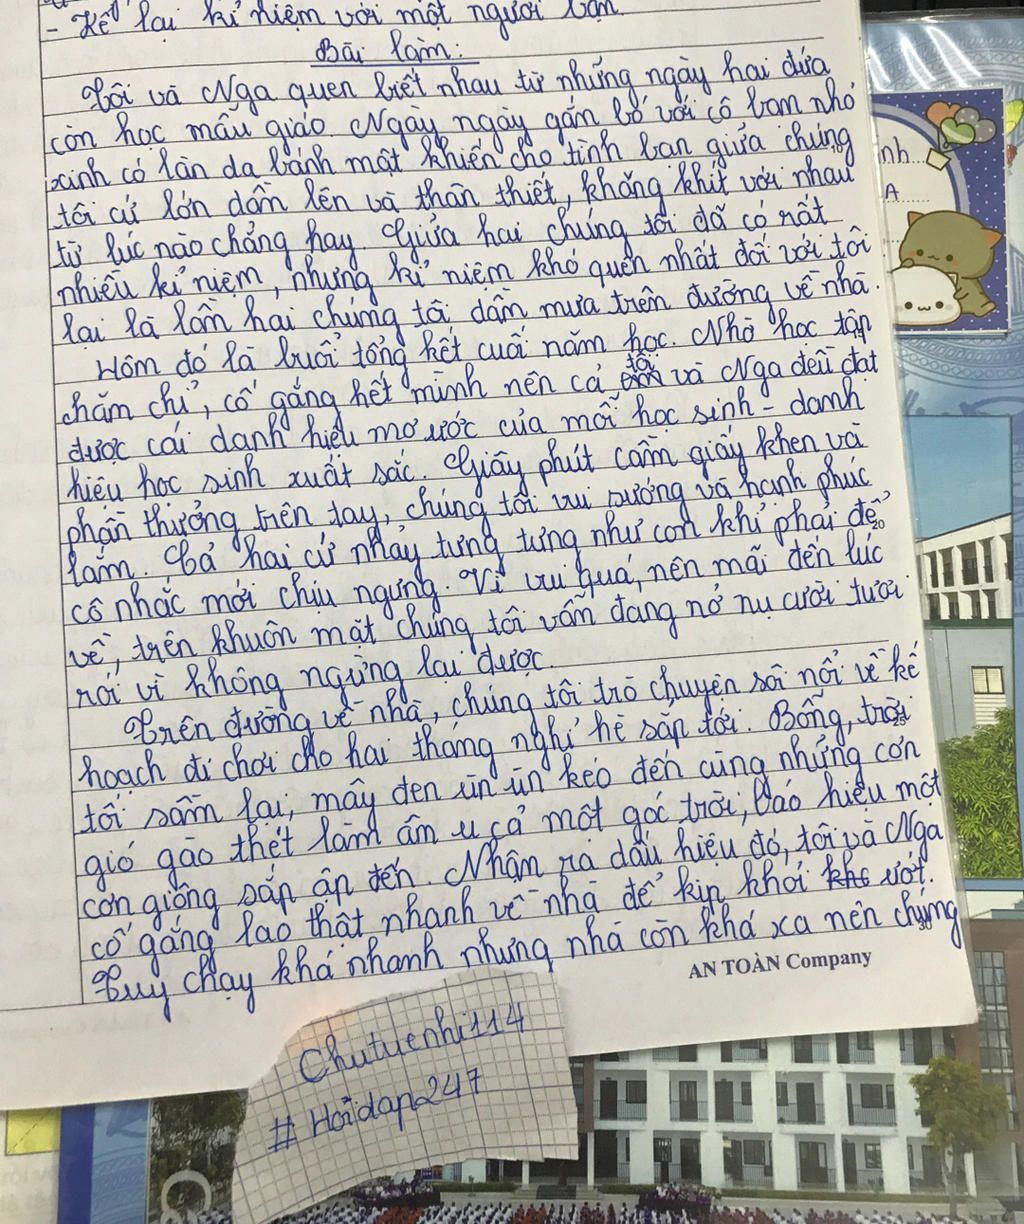 - Kể lại kỉ niệm với một người bạn.
Bài làm:
Tôi và Nga quen biết nhau từ những ngày hai đứa
còn học mẫu giáo. Ngày ngày gắn bó với cô bạn nhỏ
xinh có làn da bánh mật khiến cho tình bạn giữa chúng
tôi cứ lớn dần lên và thân thiết, khăng khít với nhau
từ lúc nào chẳng hay. Giữa hai chúng tôi đã có rất
nhiều kỉ niệm, nhưng kỉ niệm khó quên nhất đối với tôi
lại là lần hai chúng tôi dầm mưa trên đường về nhà.
Hôm đó là buổi tổng kết cuối năm học. Nhờ học tập
chăm chỉ, cố gắng hết mình nên cả tôi và Nga đều đạt
được cái danh hiệu mơ ước của mỗi học sinh - danh
hiệu học sinh xuất sắc. Giây phút cầm giấy khen và
phần thưởng trên tay, chúng tôi vui sướng và hạnh phúc
lắm. Cả hai cứ nhảy tưng tưng như con khỉ phải để
20
cô nhắc mới chịu ngừng. Vì vui quá, nên mãi đến lúc
về, trên khuôn mặt chúng tôi vẫn đang nở nụ cười tươi
rói vì không ngừng lại được.
Trên đường về nhà, chúng tôi trò chuyện sôi nổi về kế
hoạch đi chơi cho hai tháng nghỉ hè sắp tới. Bỗng, trời
25
tối sầm lại, mây đen ùn ùn kéo đến cùng những cơn
gió gào thét làm âm u cả một góc trời, báo hiệu một
cơn giông sắp ập đến. Nhận ra dấu hiệu đó, tôi và Nga
cố gắng lao thật nhanh về nhà để kịp khỏi ướt.
Tuy chạy khá nhanh nhưng nhà còn khá xa nên chúng
30
AN TOÀN Company
Chutuenhi114
# Hoidap247
nh...
A......